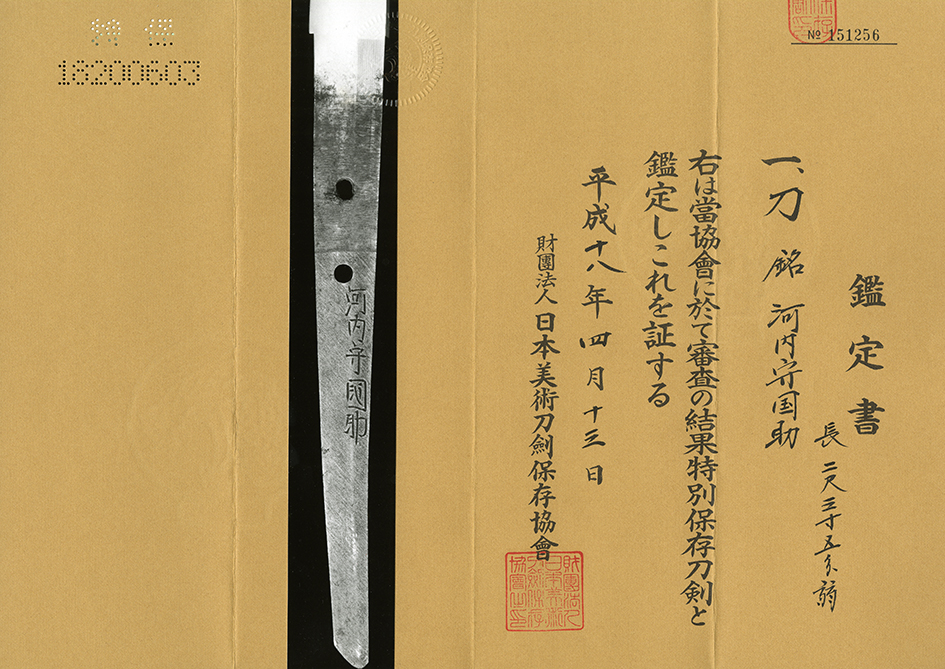 № 151256
鑑定書
一、刀 銘 河内守国助
長 二尺三寸五分弱
右は當協會に於て審査の結果特別保存刀剣と
鑑定しこれを証する
平成十八年四月十三日
財團法人 日本美術刀劍保存協會
河内守國助
18200603